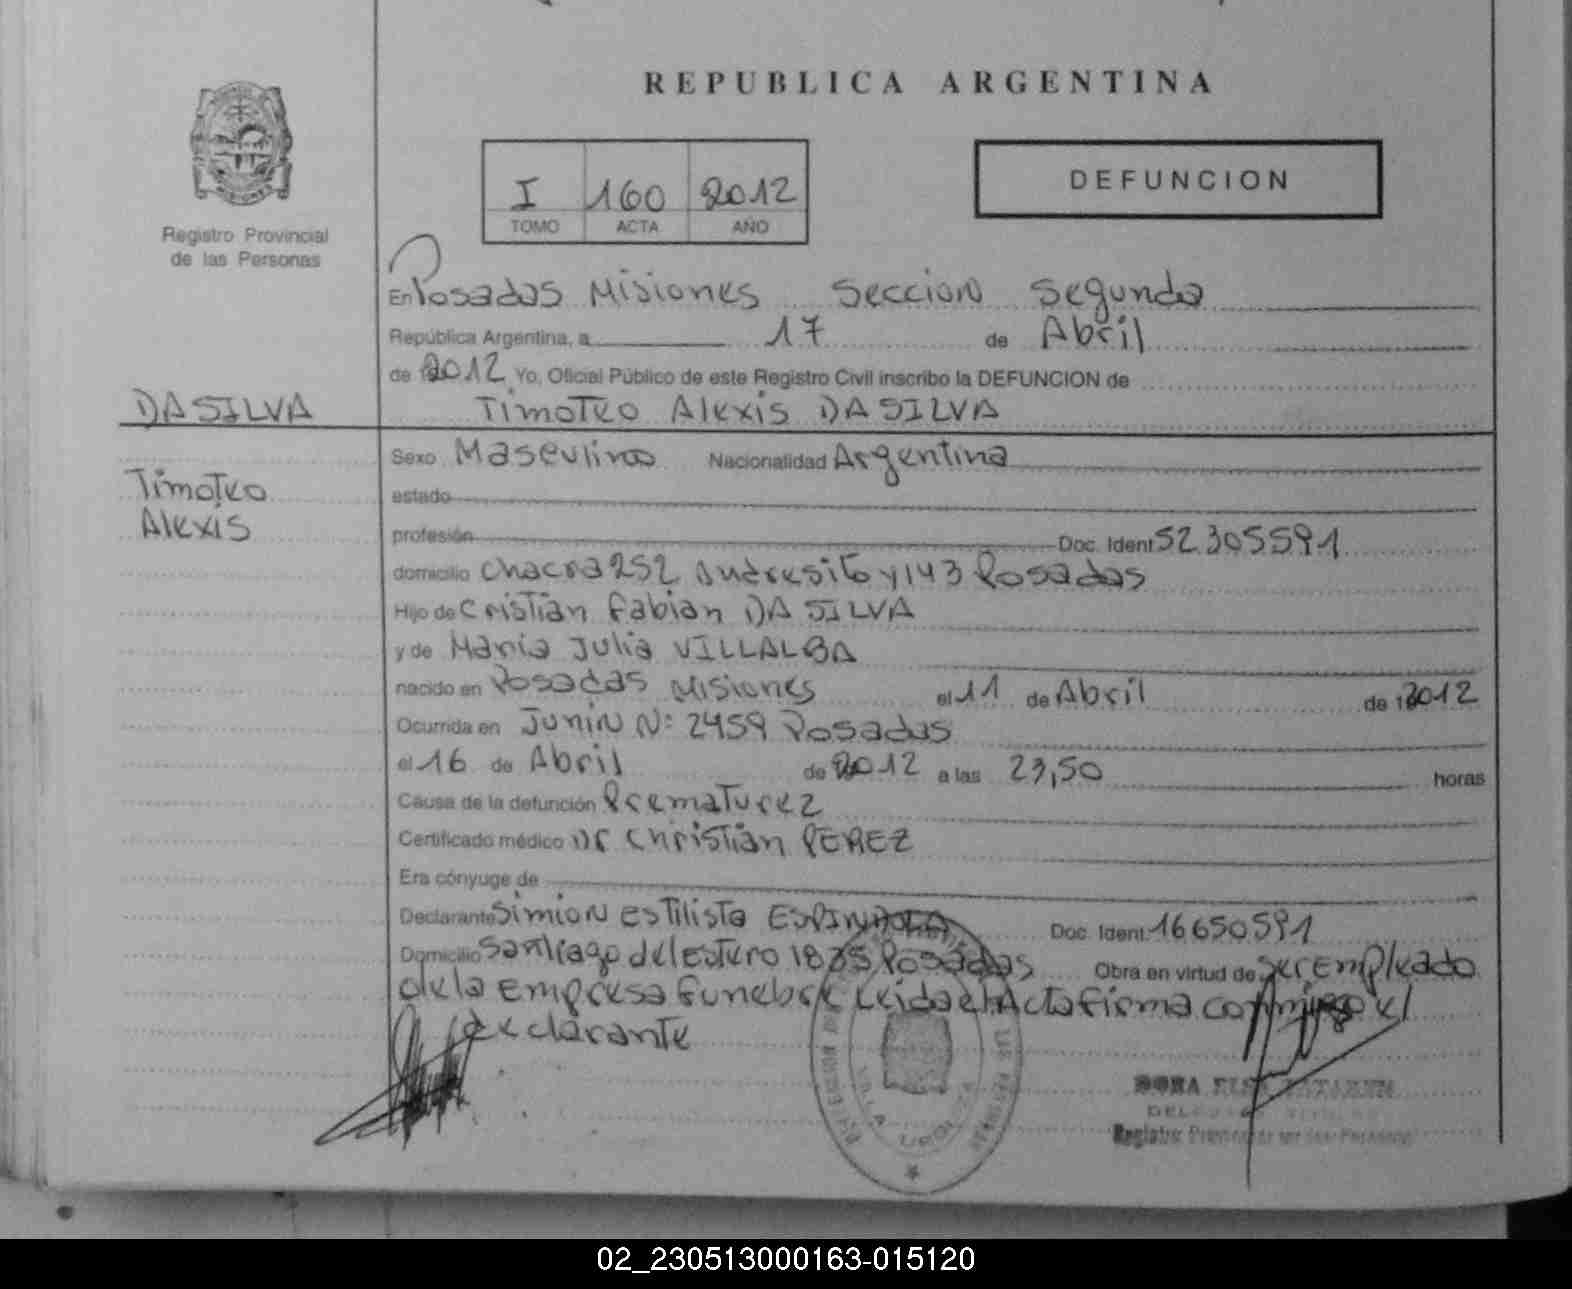 REPUBLICA ARGENTINA
I 160 2012
TOMO ACTA AÑO
DEFUNCION
Registro Provincial
de las Personas
En Posadas Misiones Seccion Segunda
República Argentina, a 17 de Abril
de 2012 Yo, Oficial Público de este Registro Civil inscribo la DEFUNCION de
DA SILVA
Timoteo Alexis DA SILVA
Sexo Masculino Nacionalidad Argentina
Timoteo
Alexis
estado
profesión Doc. Ident 52.305591
domicilio Chacra 252 Andresito y 143 Posadas
Hijo de Cristian Fabian DA SILVA
y de Maria Julia VILLALBA
nacido en Posadas Misiones el 11 de Abril de 2012
Ocurrida en Junin N: 2459 Posadas
el 16 de Abril de 2012 a las 23,50 horas
Causa de la defunción Prematurez
Certificado médico Dr Christian PEREZ
Era cónyuge de
Declarante Simion Estilista ESPINDOLA Doc. Ident. 16650591
Domicilio Santiago del Estero 1835 Posadas Obra en virtud de ser Empleado
de la Empresa Funebre Leida el Acta firma conmigo el
declarante
VILLA URQUIZA
DORA ELSA
Registro Provincial de las Personas
02_230513000163-015120